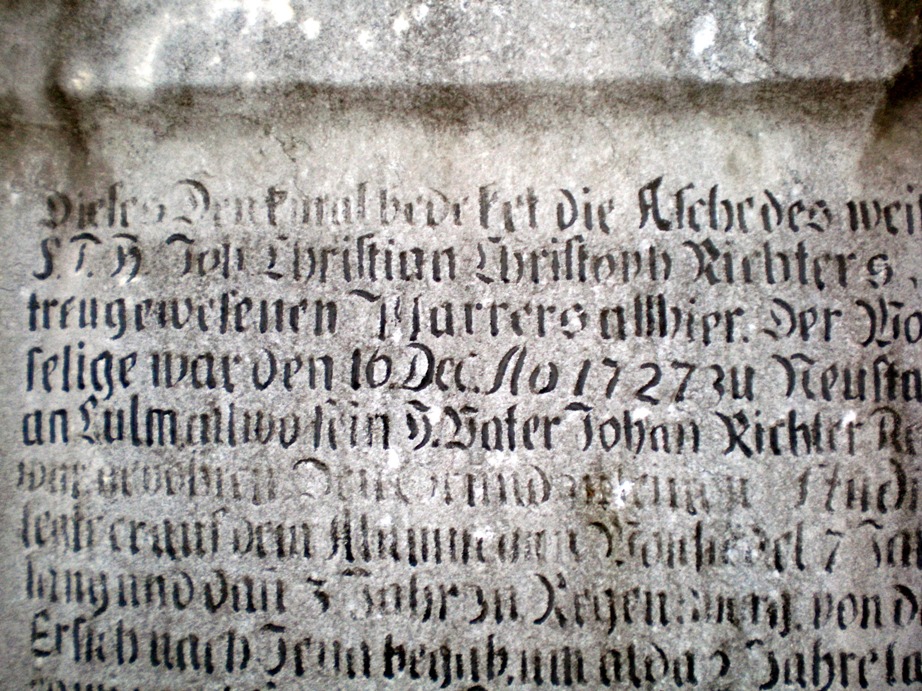 Dieses Denkmal bedecket die Asche des wei
S.T.H. Joh Christian Christoph Richters
treugewesenen Pfarrers allhier. Der Wo
selige war den 16 Dec. Ao 1727 zu Neust
an Culm allwo sein H. Vater Johan Richter R
war gebohren
setzte er auf dem Alumneo in Wonsiedel 7 Ja
lang und dan 3 Jahr zu Regensburg von d
Er sich nach Jena begeb. um alda 3 Jahre la